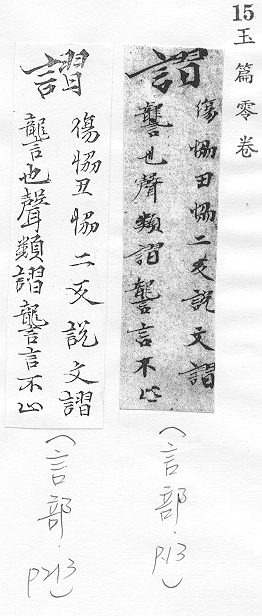 15
玉篇零卷
謵
傷愶田愶二反說文謵
讋也聲類謵讋言不止
（言部．p.13）
謵
傷愶丑愶二反說文謵
讋也聲類謵讋言不止
（言部．p213）